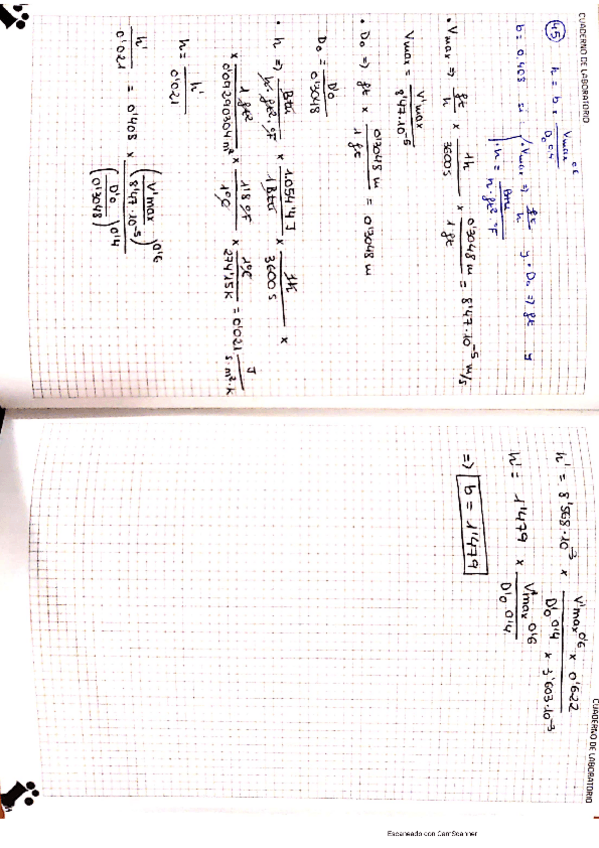 CUADERNO DE LABORATORIO
45 h = b · Vmax^0'6 / D₀^0'4
b = 0'408 si: · Vmax ⇒ ft/h y · D₀ ⇒ ft y
· h = Btu / h · ft² · °F
· Vmax ⇒ ft/h × 1h/3600 s × 0'3048 m/1 ft = 8'47·10⁻⁵ m/s
Vmax = V'max / 8'47·10⁻⁵
· D₀ ⇒ ft × 0'3048 m/1 ft = 0'3048 m
D₀ = D'₀ / 0'3048
· h ⇒ Btu / h · ft² · °F × 1054'4 J / 1 Btu × 1h / 3600 s ×
× 1 ft² / 0'09290304 m² × 1'8 °F / 1 °C × 1 °C / 274'15 K = 0'021 J / s · m² · K
h = h' / 0'021
h' / 0'021 = 0'408 × (V'max / 8'47·10⁻⁵)^0'6 / (D'₀ / 0'3048)^0'4
CUADERNO DE LABORATORIO
h' = 8'568·10⁻³ × V'max^0'6 × 0'622 / D'₀^0'4 × 3'603·10⁻³
h' = 1'479 × V'max^0'6 / D'₀^0'4
⇒ b = 1'479
Escaneado con CamScanner